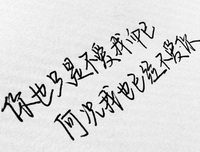 你也只是不爱我而已
何况我也已经不爱你